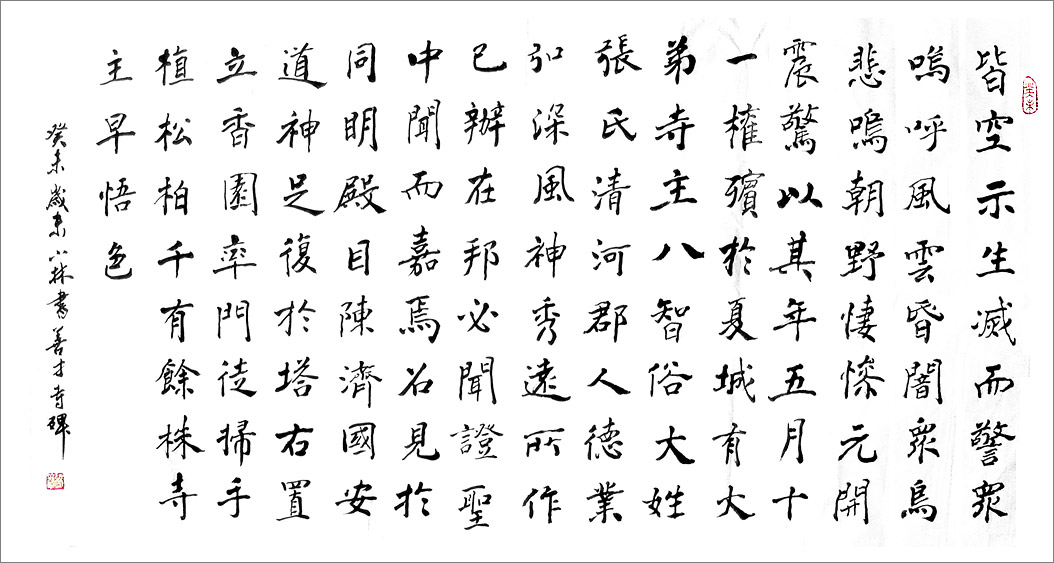 皆空示生滅而警眾
嗚呼風雲昏闇眾鳥
悲嗚朝野悽慘元開
震驚以其年五月十
一權殯於夏城有大
弟寺主八智俗大姓
張氏清河郡人德業
弘深風神秀遠所作
已辦在邦必聞證聖
中聞而嘉焉召見於
同明殿目陳濟國安
道神足復於塔右置
立香園率門徒掃手
植松柏千有餘株寺
主早悟色
癸未歲末小林書善才寺碑